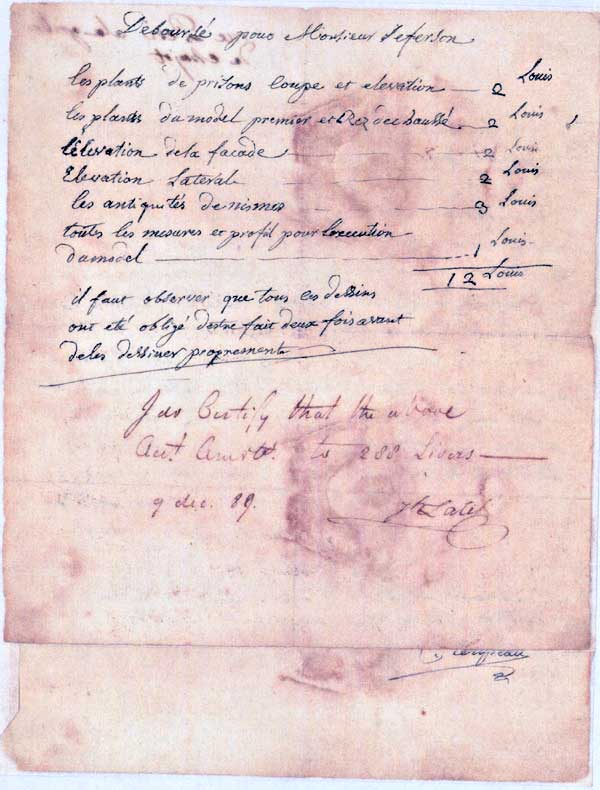 Déboursé pour Monsieur Jeferson
les plants de prisons Coupe et elevation — 2 Louis
les plants du model premier et Rez de chaussé 2 Louis
l'élevation de la facade — 2 Louis
Elevation Laterale — 2 Louis
les antiquités de nismes — 3 Louis
toutes les mesures et profil pour l'execution
du model — 1 Louis
12 Louis
il faut observer que tous ces dessins
ont été obligé d'estre fait deux fois avant
de les dessiner proprement
I do Certify that the above
Acct. Amts. to 288 Livers —
9 dec. 89.